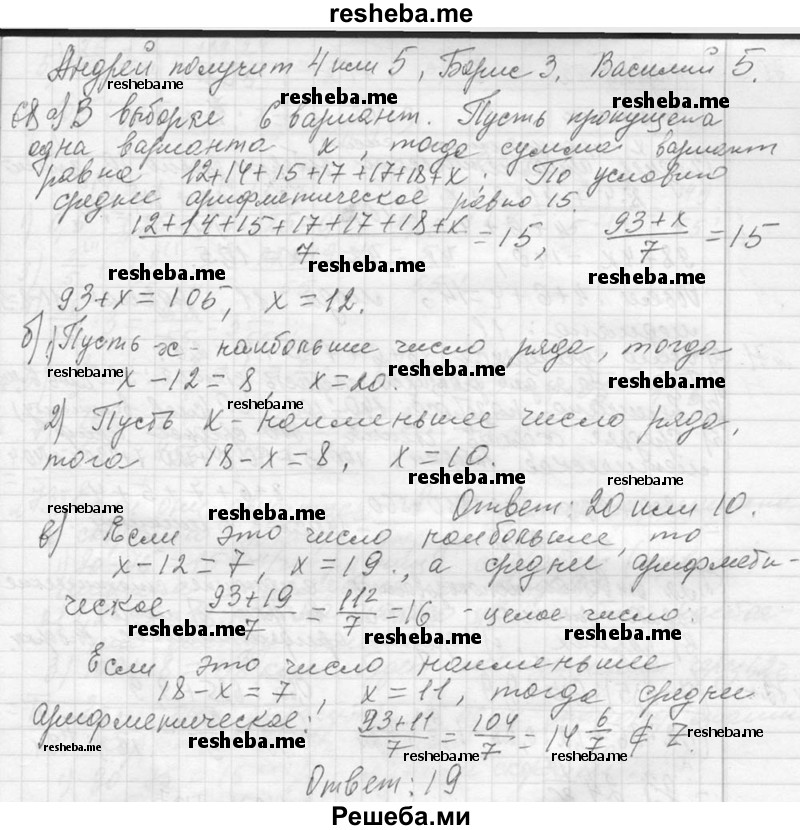 resheba.me
Андрей получит 4 или 5, Борис 3, Василий 5.
resheba.me resheba.me resheba.me
а) В выборке 6 вариант. Пусть пропущена
одна варианта x, тогда сумма вариант
равна 12+14+15+17+17+18+x. По условию
среднее арифметическое равно 15.
12+14+15+17+17+18+x / 7 = 15, 93+x / 7 = 15
resheba.me resheba.me
93+x=105, x=12.
б) 1) Пусть x - наибольшее число ряда, тогда
resheba.me resheba.me
x-12=8, x=20.
resheba.me resheba.me
2) Пусть x - наименьшее число ряда,
тога 18-x=8, x=10.
resheba.me resheba.me
resheba.me resheba.me
Ответ: 20 или 10.
в) Если это число наибольшее, то
x-12=7, x=19, а среднее арифмети-
ческое 93+19 / 7 = 112 / 7 = 16 - целое число.
resheba.me resheba.me resheba.me
Если это число наименьшее
18-x=7, x=11, тогда среднее
арифметическое: 93+11 / 7 = 104 / 7 = 14 6/7 ∉ Z.
resheba.me resheba.me resheba.me resheba.me resheba.me
Ответ: 19
Решеба.ми